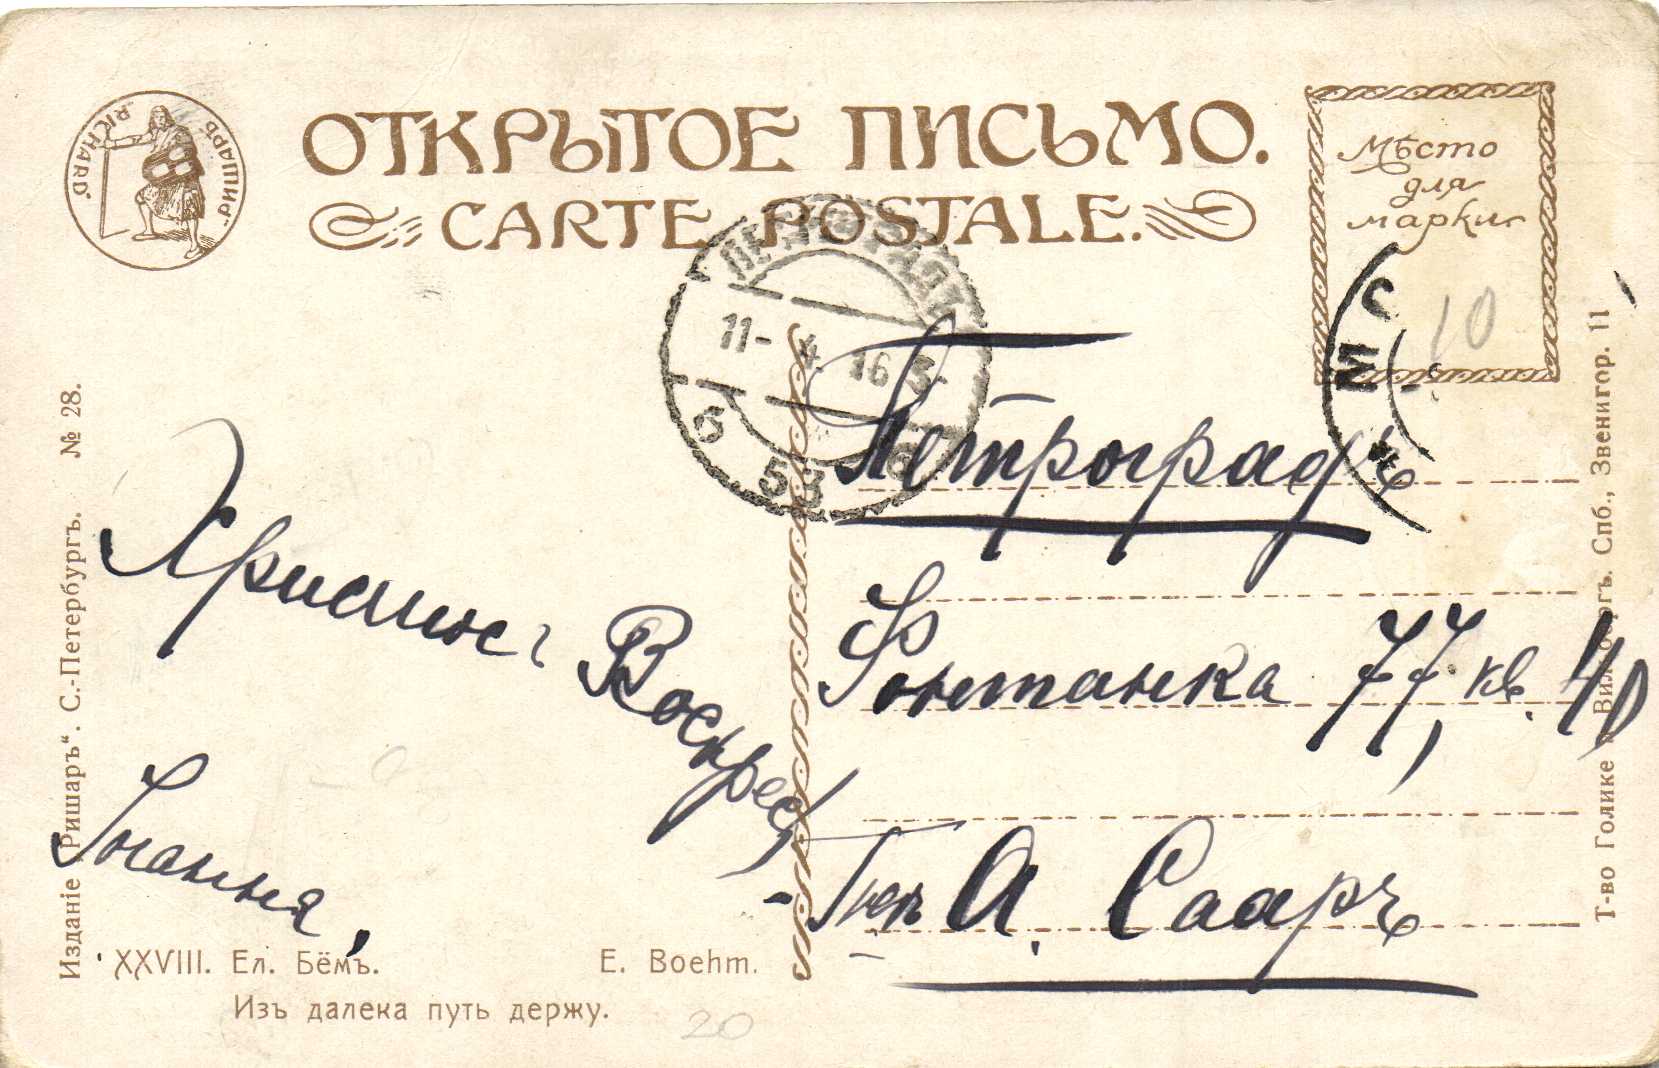 „RICHARD“ „РИШАРЪ“
ОТКРЫТОЕ ПИСЬМО.
CARTE POSTALE.
Мѣсто
для
марки
10
ПЕТРОГРАДЪ
11-4 16 3
6 53 6
МС
Петроградъ
Фонтанка 77, кв. 40
А. Сааръ
Христосъ Воскресъ
Іоанна
Изданіе „Ришаръ“. С.-Петербургъ. № 28.
XXVIII. Ел. Бёмъ. E. Boehm.
Изъ далека путь держу.
20
Т-во Голике и Вильборгъ. Спб., Звенигор. 11